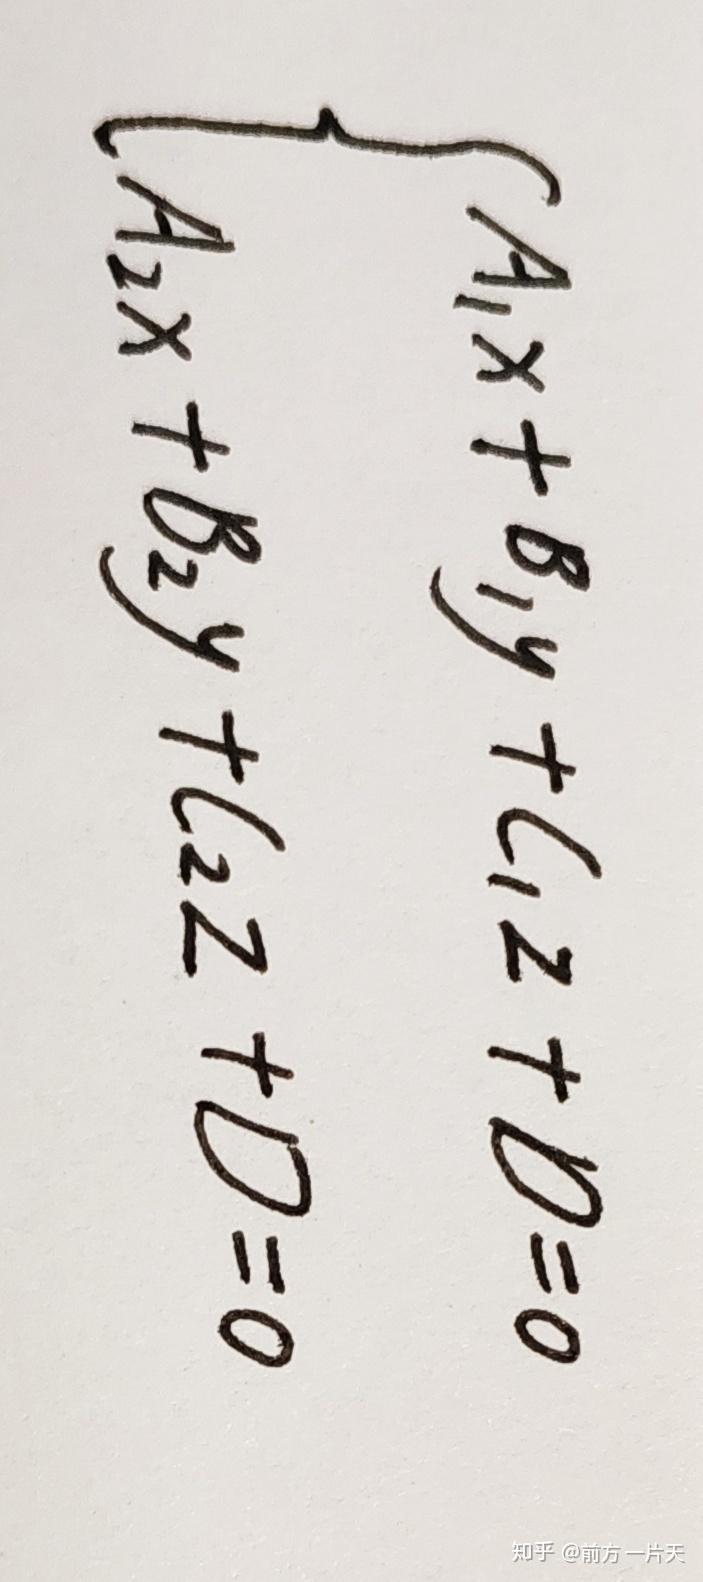 A₁x + B₁y + C₁z + D = 0
A₂x + B₂y + C₂z + D = 0
知乎 @前方一片天